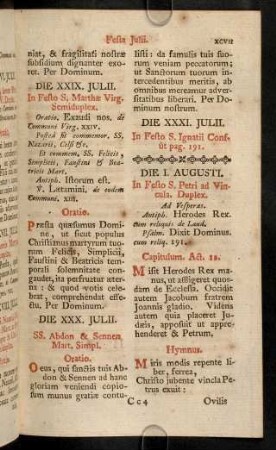 Festa Julii.
XCVII
niat, & fragilitati nostræ
subsidium dignanter exo-
ret. Per Dominum.
DIE XXIX. JULII.
In Festo S. Marthæ Virg.
Semiduplex.
Oratio. Exaudi nos. de
Communi Virg. XXIV.
Postea fit commemor. SS.
Nazarii, Celsi &c.
Et commem. SS. Felicis,
Simplicii, Faustini & Bea-
tricis Mart.
Antiph. Istorum est.
℣. Lætamini, de eodem
Communi, XIII.
Oratio.
PRæsta quæsumus Domi-
ne, ut sicut populus
Christianus martyrum tuo-
rum Felicis, Simplicii,
Faustini & Beatricis tem-
porali solemnitate con-
gaudet, ita perfruatur æter-
na: & quod votis cele-
brat, comprehendat effe-
ctu, Per Dominum.
DIE XXX. JULII.
SS. Abdon & Sennen
Mart. Simpl.
Oratio.
DEus, qui sanctis tuis Ab-
don & Sennen ad hanc
gloriam veniendi copio-
sum munus gratiæ contu-
listi: da famulis tuis suo-
rum veniam peccatorum;
ut Sanctorum tuorum in-
tercedentibus meritis, ab
omnibus mereamur adver-
sitatibus liberari. Per Do-
minum nostrum.
DIE XXXI. JULII.
In Festo S. Ignatii Conf.
ut pag. 191.
DIE I. AUGUSTI.
In Festo S. Petri ad Vin-
cula. Duplex.
Ad Vesperas.
Antiph. Herodes Rex.
cum reliquis de Laud.
Psalm. Dixit Dominus.
cum reliq. 191.
Capitulum. Act. 12.
MIsit Herodes Rex ma-
nus, ut affligeret quos-
dam de Ecclesia. Occidit
autem Jacobum fratrem
Joannis gladio. Videns
autem quia placeret Ju-
dæis, apposuit ut appre-
henderet & Petrum.
Hymnus.
MIris modis repente li-
ber, ferrea,
Christo jubente vincla Pe-
trus exuit:
Cc4
Ovilis